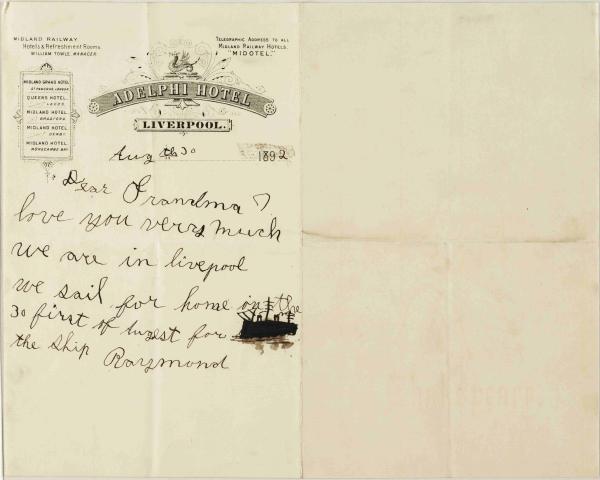 MIDLAND RAILWAY
Hotels & Refreshment Rooms.
WILLIAM TOWLE, MANAGER.
TELEGRAPHIC ADDRESS TO ALL
MIDLAND RAILWAY HOTELS.
"MIDOTEL."
MIDLAND GRAND HOTEL
ST PANCRAS, LONDON
QUEENS HOTEL
LEEDS.
MIDLAND HOTEL
BRADFORD.
MIDLAND HOTEL
DERBY.
MIDLAND HOTEL
MORECAMBE BAY.
ADELPHI HOTEL
LIVERPOOL.
Aug th 30 1892
Dear Grandma I
love you verry much
we are in livepool
we sail for home on the
30 first of Augest for
the ship Raymond